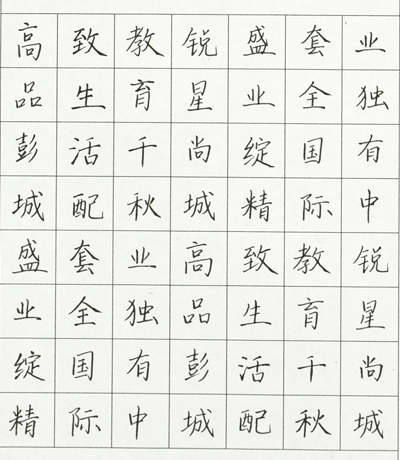 高致教锐盛套业
品生育星业全独
彭活千尚绽国有
城配秋城精际中
盛套业高致教锐
业全独品生育星
绽国有彭活千尚
精际中城配秋城